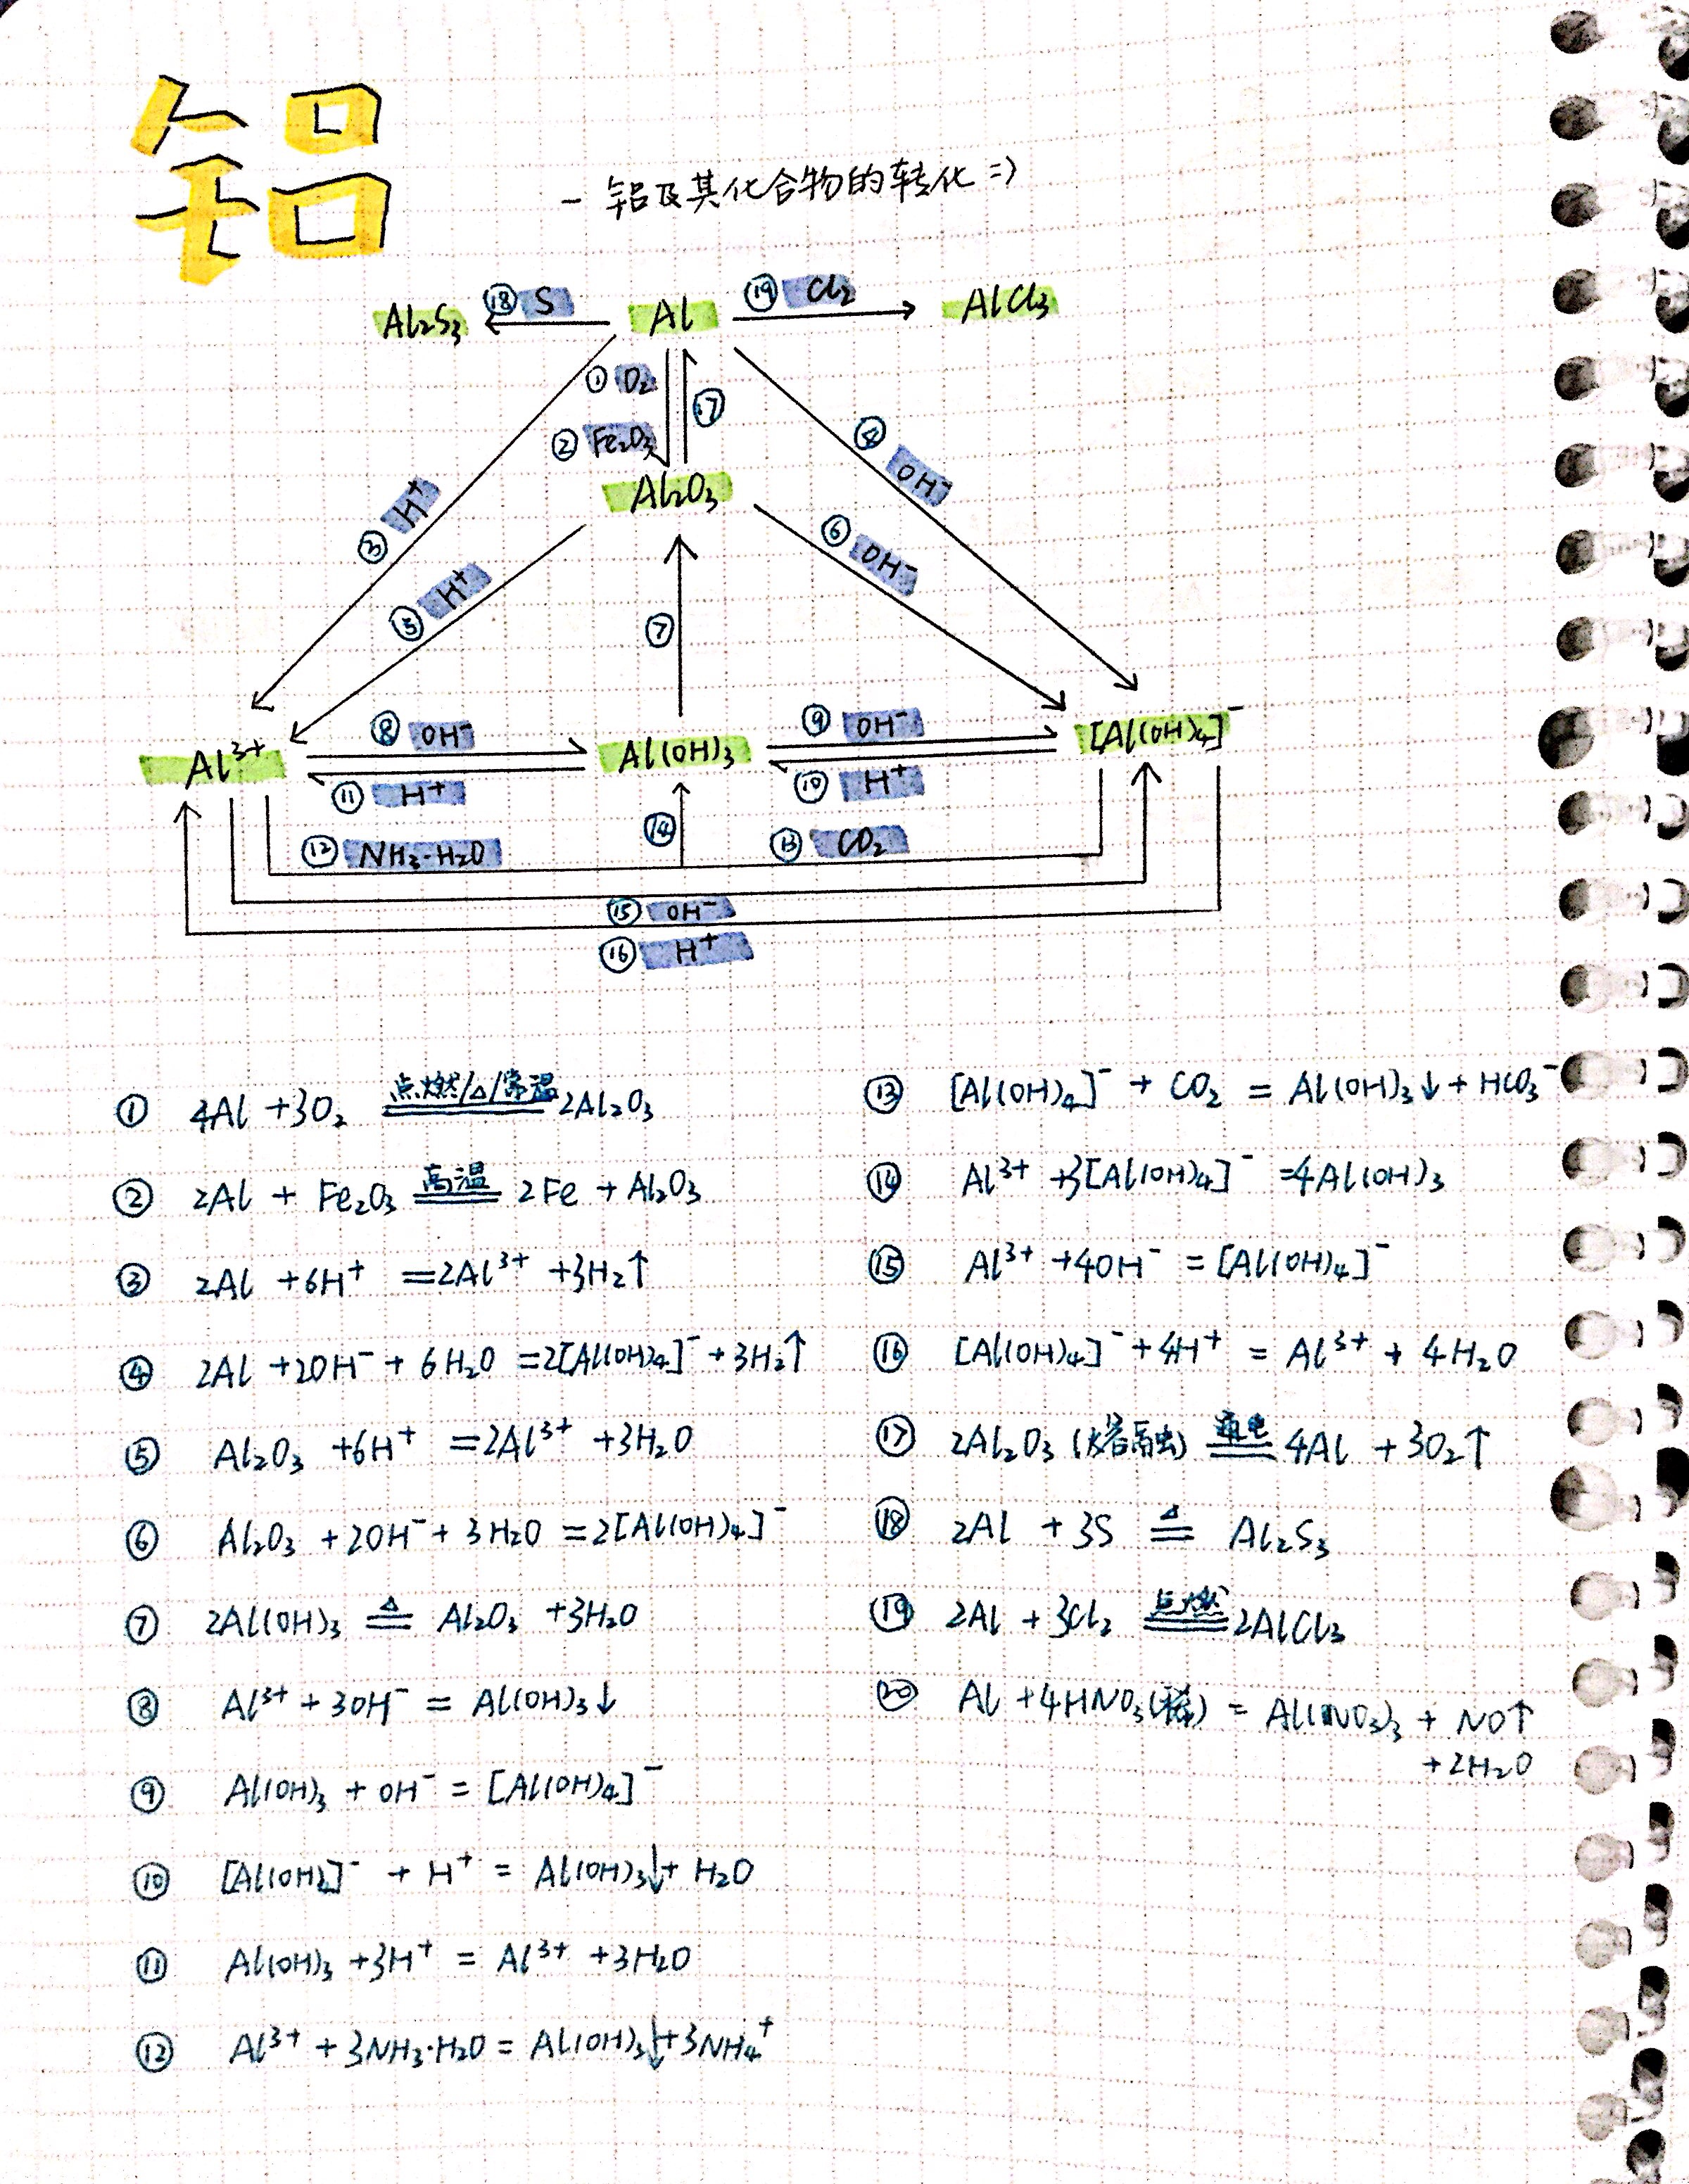 铝
- 铝及其化合物的转化 =>
Al₂S₃ ⑱ S Al ⑲ Cl₂ AlCl₃
① O₂ ⑰
② Fe₂O₃ ④ OH⁻
Al₂O₃
③ H⁺ ⑥ OH⁻
⑤ H⁺ ⑦
Al³⁺ ⑧ OH⁻ Al(OH)₃ ⑨ OH⁻ [Al(OH)₄]⁻
⑪ H⁺ ⑩ H⁺
⑫ NH₃·H₂O ⑭ ⑬ CO₂
⑮ OH⁻
⑯ H⁺
① 4Al +3O₂ 点燃/△/常温 2Al₂O₃
② 2Al + Fe₂O₃ 高温 2Fe + Al₂O₃
③ 2Al +6H⁺ =2Al³⁺ +3H₂↑
④ 2Al +2OH⁻ + 6H₂O =2[Al(OH)₄]⁻ +3H₂↑
⑤ Al₂O₃ +6H⁺ =2Al³⁺ +3H₂O
⑥ Al₂O₃ +2OH⁻ + 3H₂O =2[Al(OH)₄]⁻
⑦ 2Al(OH)₃ △ Al₂O₃ +3H₂O
⑧ Al³⁺ +3OH⁻ = Al(OH)₃↓
⑨ Al(OH)₃ + OH⁻ = [Al(OH)₄]⁻
⑩ [Al(OH)₄]⁻ + H⁺ = Al(OH)₃↓+ H₂O
⑪ Al(OH)₃ +3H⁺ = Al³⁺ +3H₂O
⑫ Al³⁺ + 3NH₃·H₂O = Al(OH)₃↓+3NH₄⁺
⑬ [Al(OH)₄]⁻ + CO₂ = Al(OH)₃↓+ HCO₃⁻
⑭ Al³⁺ +3[Al(OH)₄]⁻ =4Al(OH)₃
⑮ Al³⁺ +4OH⁻ = [Al(OH)₄]⁻
⑯ [Al(OH)₄]⁻ +4H⁺ = Al³⁺ + 4H₂O
⑰ 2Al₂O₃ (熔融) 通电 4Al + 3O₂↑
⑱ 2Al + 3S △ Al₂S₃
⑲ 2Al + 3Cl₂ 点燃 2AlCl₃
⑳ Al +4HNO₃(稀) = Al(NO₃)₃ + NO↑
+2H₂O